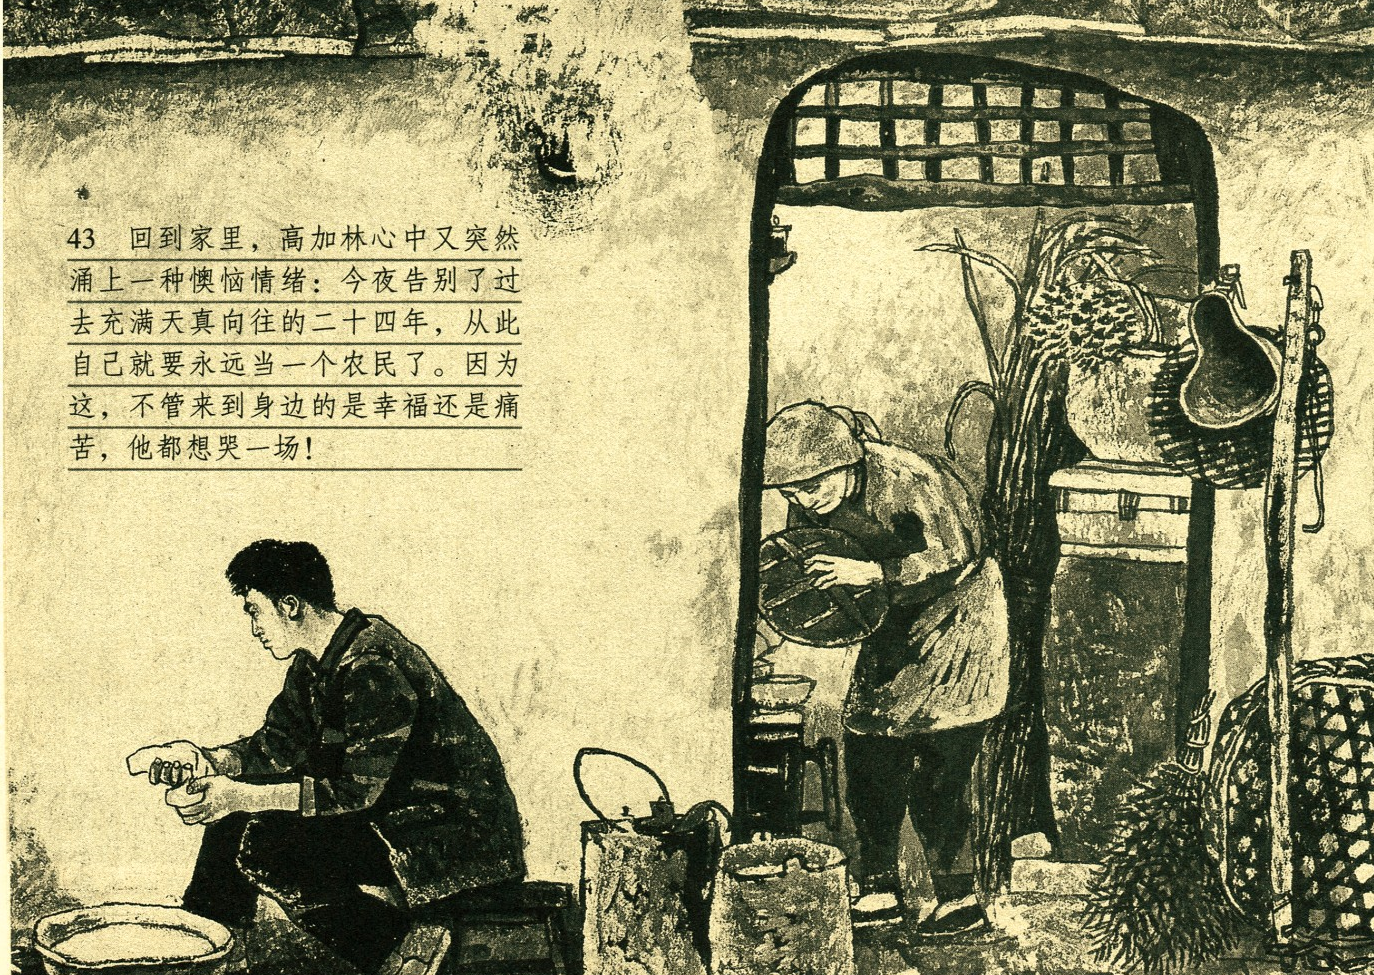 43 回到家里，高加林心中又突然
涌上一种懊恼情绪：今夜告别了过
去充满天真向往的二十四年，从此
自己就要永远当一个农民了。因为
这，不管来到身边的是幸福还是痛
苦，他都想哭一场！